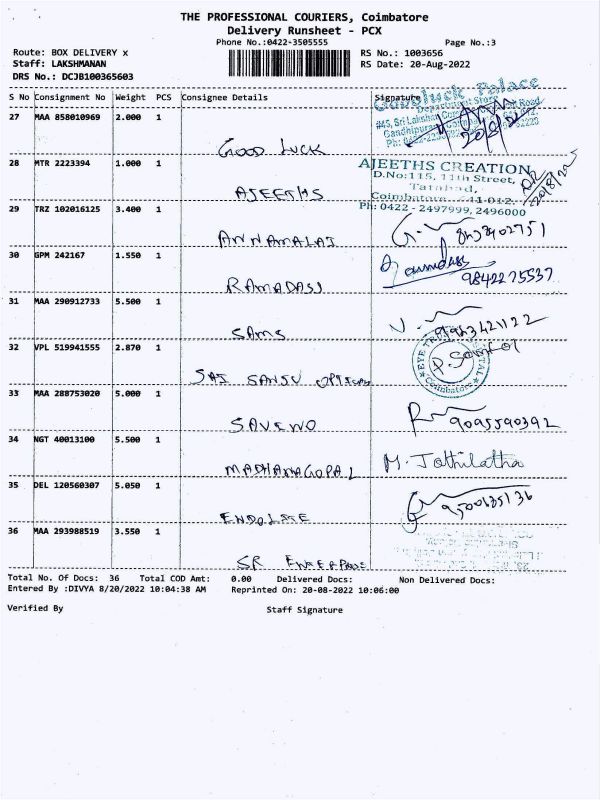 THE PROFESSIONAL COURIERS, Coimbatore
Delivery Runsheet - PCX
Phone No.:0422-3505555 Page No.:3
Route: BOX DELIVERY x RS No.: 1003656
Staff: LAKSHMANAN RS Date: 20-Aug-2022
DRS No.: DCJB100365603
S No Consignment No Weight PCS Consignee Details Signature
Palace
27 MAA 858010969 2.000 1
GOOD LUCK
28 MTR 2223394 1.000 1 AJEETHS CREATION
D.No:115, 11th Street,
Tatabad,
AJEETHS
Ph: 0422 - 2497999, 2496000
29 TRZ 102016125 3.400 1
ANNAMALAI
30 GPM 242167 1.550 1
9842275537
RAMADASS
31 MAA 290912733 5.500 1
SAMS
32 VPL 519941555 2.870 1
Coimbatore
SAI SANJU OPTICALS
33 MAA 288753020 5.000 1
9095590392
34 NGT 40013100 5.500 1
M. Jothilatha
MADHANAGOPAL
35 DEL 120560307 5.050 1
9500635136
36 MAA 293988519 3.550 1
SR
Total No. Of Docs: 36 Total COD Amt: 0.00 Delivered Docs: Non Delivered Docs:
Entered By :DIVYA 8/20/2022 10:04:38 AM Reprinted On: 20-08-2022 10:06:00
Verified By Staff Signature